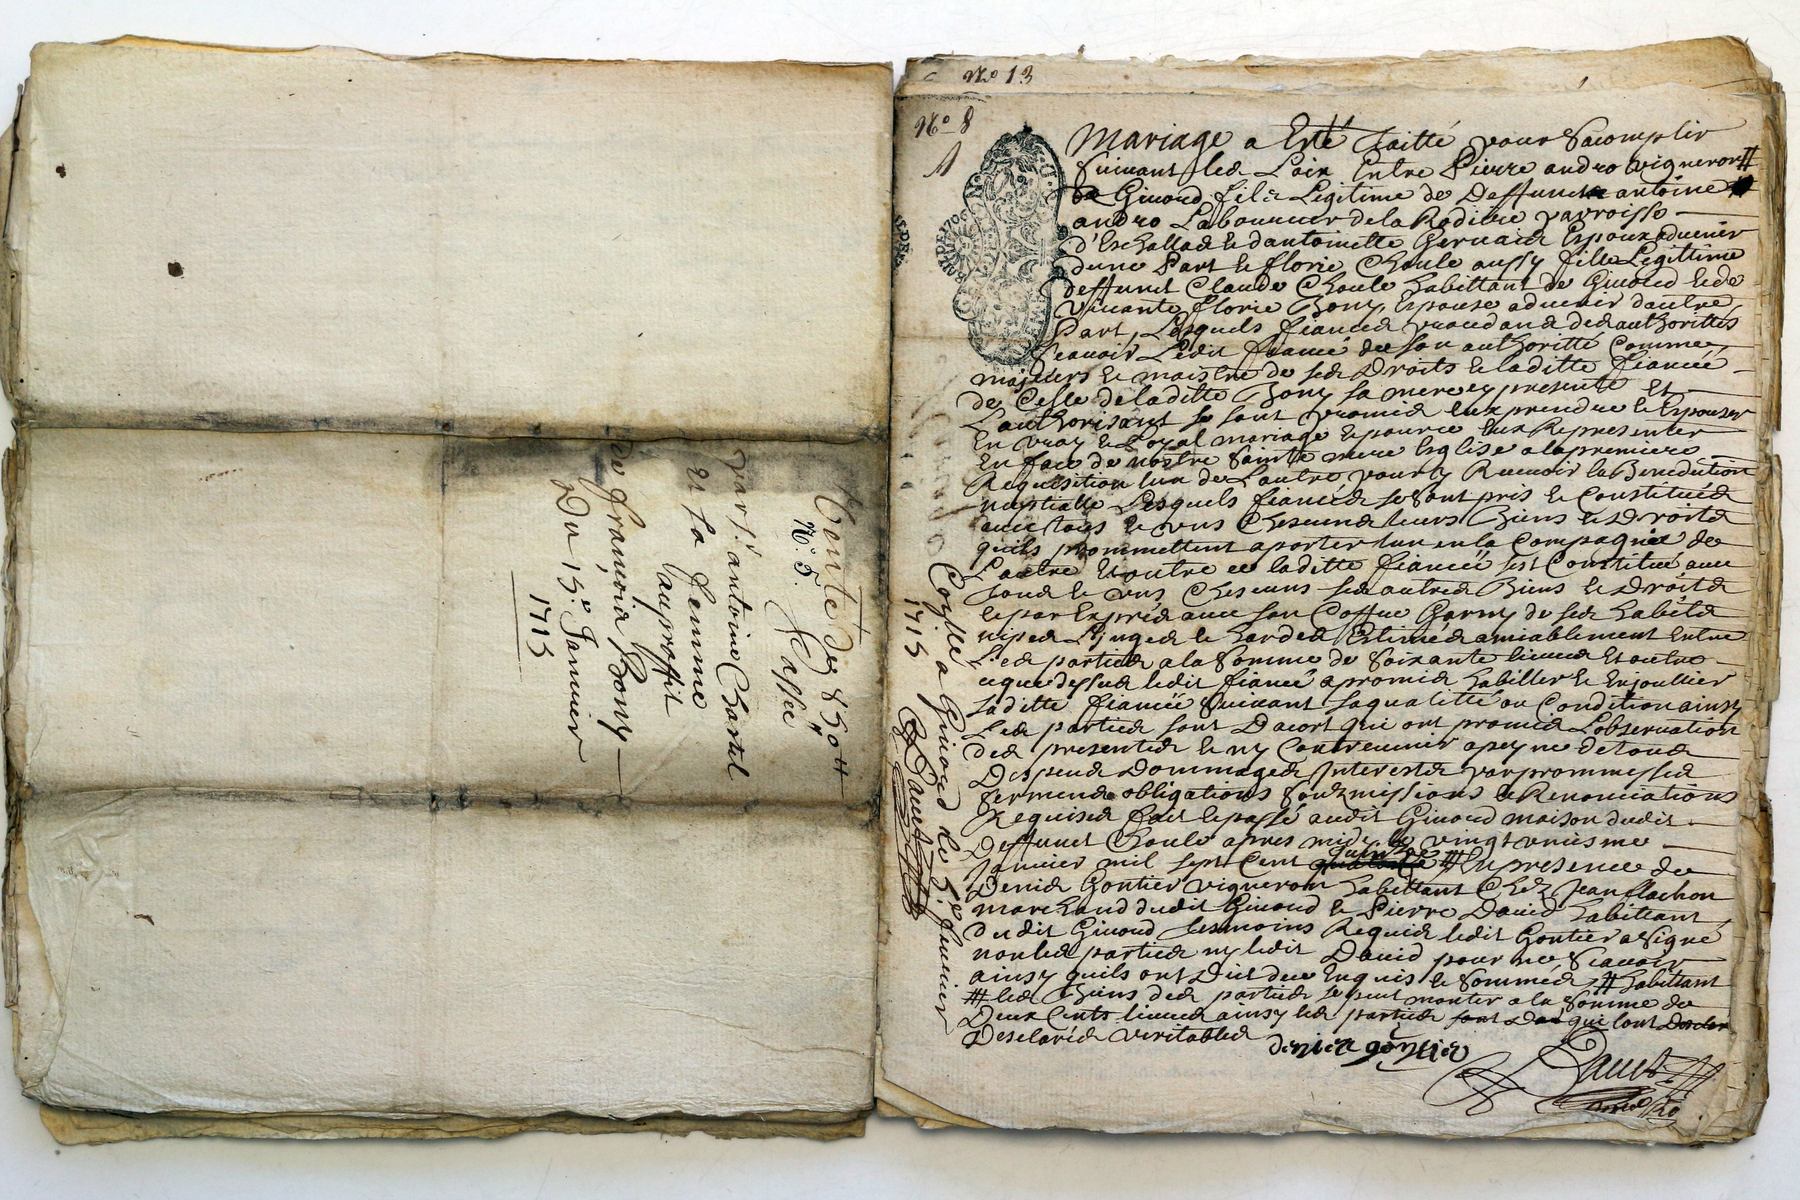 Vente de 850 ₶
N.° 5. Passée
par s.r antoine Chartel
et sa femme
au proffit
de françois Bony
Du 15.e Janvier
1715
N.o 13
N.o 8
1
Mariage a Esté traitté pour s'acomplir
suivant les Loix Entre Pierre andro vigneron #
de Givord fils Legitime de Deffunct antoine
andro Laboureur de la Rodiere parroisse
d'Eschallas & d'antoinette Gervais Espoux advenir
dune Part & florie Choule aussy fille Legittime
deffunct Claude Choule habittant de Givord & de
vivante florie Bony, Espouse advenir dautre
Part, Lesquels fiancés procedans des authorittes
scavoir Ledit fiancé de son authoritte Comme
majeurs & maistre de ses Droits & laditte fiancéé
de Celle de laditte Bony sa mere cy presente et
L'authorisant se sont promis Eux prendre & Espouser
En vray & Loyal mariage & pource Eux Representer
En face de nostre Sainte mere Esglise a la premiere
Requisition lun de L'autre pour y Recevoir la Benediction
nuptialle Lesquels fiancés se sont pris & Constitués
avec tous & uns Chescuns leurs Biens & Droits
quils prommettent aporter lun en la Compagnie de
L'autre Et outre ce laditte fiancéé s'est Constitué avec
tous & uns Chescuns ses autres Biens & Droits
& par Exprés avec son Coffre Garny de ses habits
nipes Linges & hardes Estimés amiablement Entre
Les parties a la somme de soixante livres Et outre
ce que dessus ledit fiancé a promis habiller & Enjouller
laditte fiancéé suivant sa qualitté ou Condition ainsy
les parties sont D'acort qui ont promis L'observation
des presentes & ny Contrevenir a peyne de tous
Despens Dommages Interests par prommesses
sermens obligations soubzmissions & Renonciations
Requises fait & passé audit Givord maison dudit
Deffunct Choule apres midy le vingt uniesme
Janvier mil sept Cent quinze # En presence de
Denis Gontier vigneron habittant Chez Jean flachon
marchand dudit Givord & Pierre David habittant
dudit Givord tesmoins Requis ledit Gontier a signé
non les parties ny ledit David pour ne scavoir
ainsy quils ont Dict de ce Enquis & sommés, # habittant
# les Biens des parties se peut monter a la somme de
Deux Cents livres ainsy les parties qui lont
Desclarés veritables
denis gontier
Coyllé a Givord le 5.e fevrier
1715